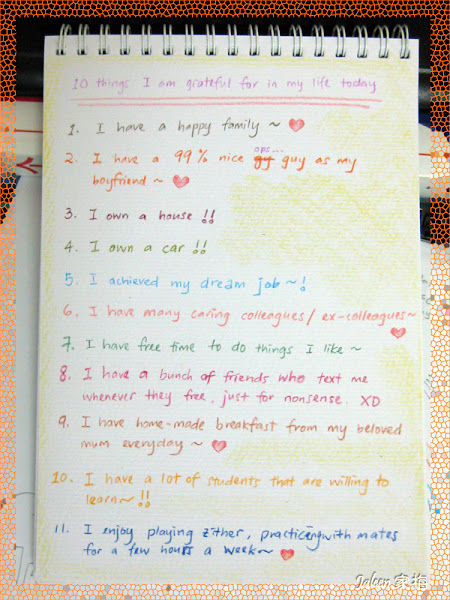 10 things I am grateful for in my life today
1. I have a happy family ~
2. I have a 99% nice gy ops... guy as my
boyfriend ~
3. I own a house !!
4. I own a car !!
5. I achieved my dream job ~ !
6. I have many caring colleagues / ex-colleagues ~
7. I have free time to do things I like ~
8. I have a bunch of friends who text me
whenever they free, just for nonsense. XD
9. I have home-made breakfast from my beloved
mum everyday ~
10. I have a lot of students that are willing to
learn ~ !!
11. I enjoy playing zither, practicing with mates
for a few hours a week ~
家梅